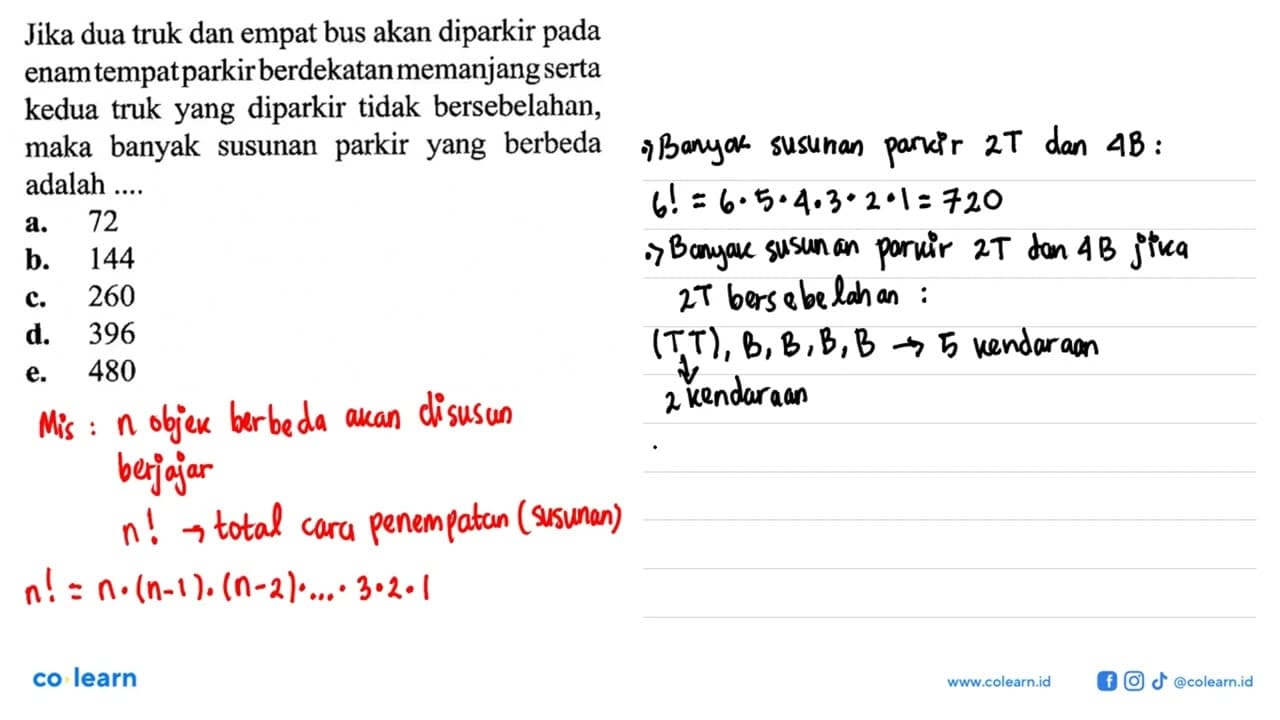 Jika dua truk dan empat bus akan diparkir pada
enam tempat parkir berdekatan memanjang serta
kedua truk yang diparkir tidak bersebelahan,
maka banyak susunan parkir yang berbeda
adalah ....
a. 72
b. 144
c. 260
d. 396
e. 480
Mis : n objek berbeda akan disusun
berjajar
n! → total cara penempatan (susunan)
n! = n·(n-1)·(n-2)·...·3·2·1
Banyak susunan parkir 2T dan 4B :
6! = 6·5·4·3·2·1 = 720
Banyak susunan parkir 2T dan 4B jika
2T bersebelahan :
(T,T), B, B, B, B → 5 kendaraan
↓
2 kendaraan
co learn
www.colearn.id
@colearn.id